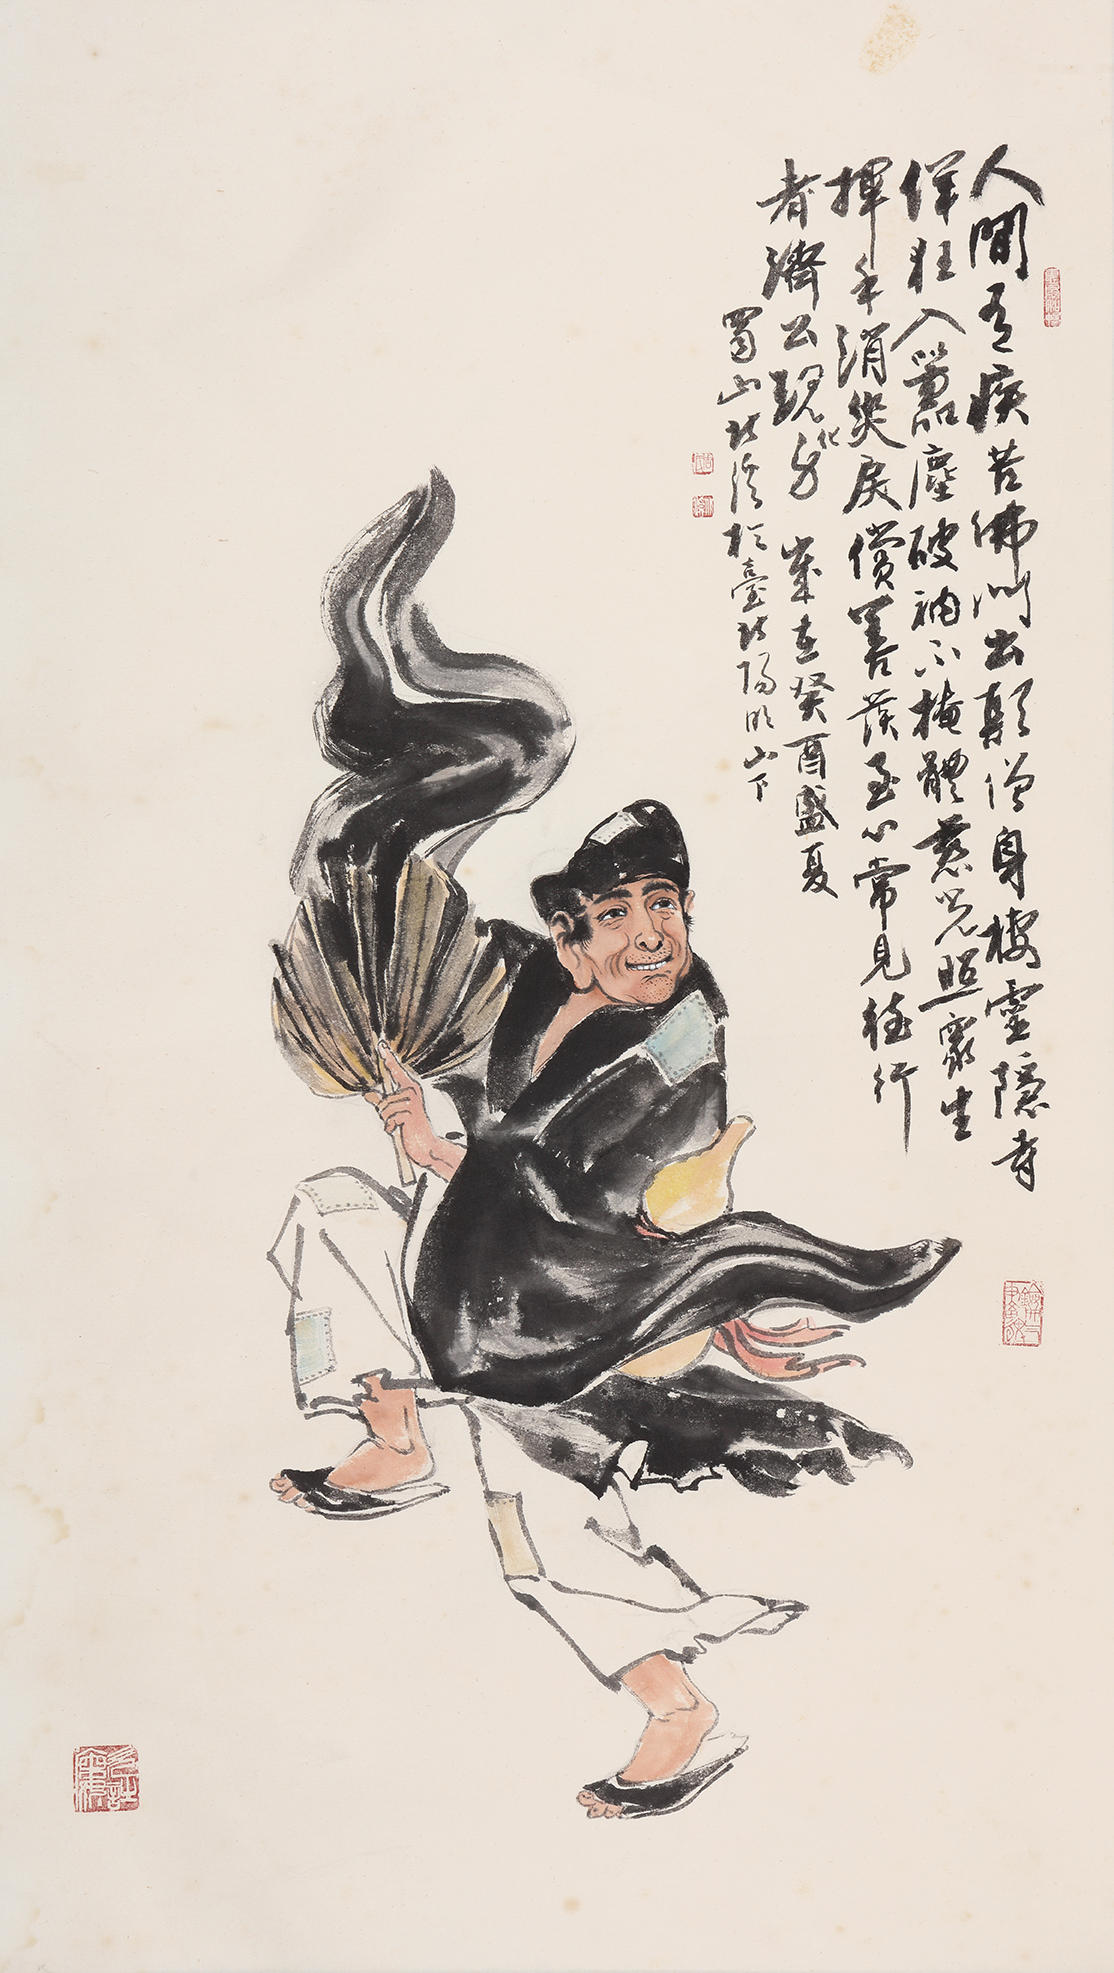 人間有疾苦佛門出顛僧身棲靈隱寺
佯狂入囂塵破衲不掩體慈光照眾生
揮手消災戾償善發至心常見德行
者濟公現化身 歲在癸酉盛夏
蜀山北溪於臺北陽明山下